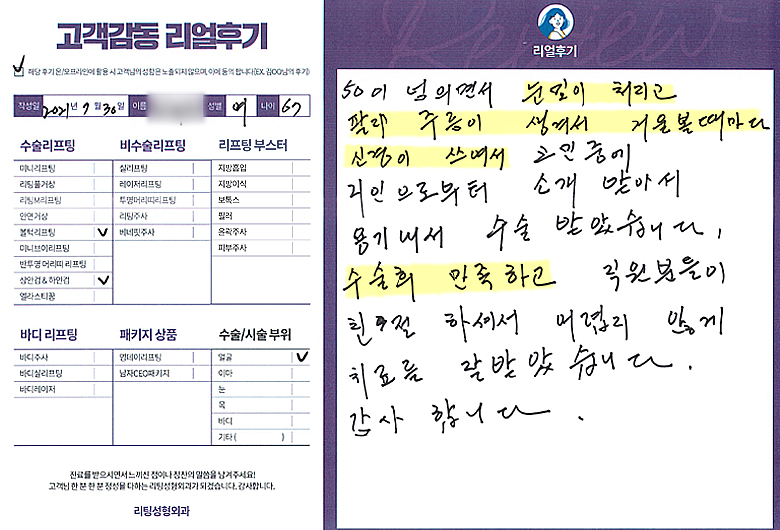 고객감동 리얼후기
해당 후기 온/오프라인에 활용 시 고객님의 성함은 노출되지 않으며, 이에 동의 합니다(EX. 김OO님의 후기)
작성일 2021년 7월 30일 이름 성별 여 나이 67
수술리프팅
미니리프팅
리팅풀거상
리팅M리프팅
안면거상
볼턱리프팅 ✓
미니브이리프팅
반투명 머리띠 리프팅
상안검 & 하안검 ✓
엘라스티꿈
비수술리프팅
실리프팅
레이저리프팅
투명머리띠리프팅
리팅주사
베네핏주사
리프팅 부스터
지방흡입
지방이식
보톡스
필러
윤곽주사
피부주사
바디 리프팅
바디주사
바디실리프팅
바디레이저
패키지 상품
연데이리프팅
남자CEO패키지
수술/시술 부위
얼굴 ✓
이마
눈
목
바디
기타 ( )
진료를 받으시면서 느끼신 점이나 칭찬의 말씀을 남겨주세요!
고객님 한 분 한 분 정성을 다하는 리팅성형외과가 되겠습니다. 감사합니다.
리팅성형외과
Review
리얼후기
50이 넘의면서 눈밑이 처리고
팔자 주름이 생겨서 거울볼때마다
신경이 쓰여서 고민중에
지인으로부터 소개 받아서
용기내서 수술 받았습니다.
수술희 만족하고 직원분들이
친절 하셔서 어렵지 않게
치료를 잘받았습니다.
감사 합니다.